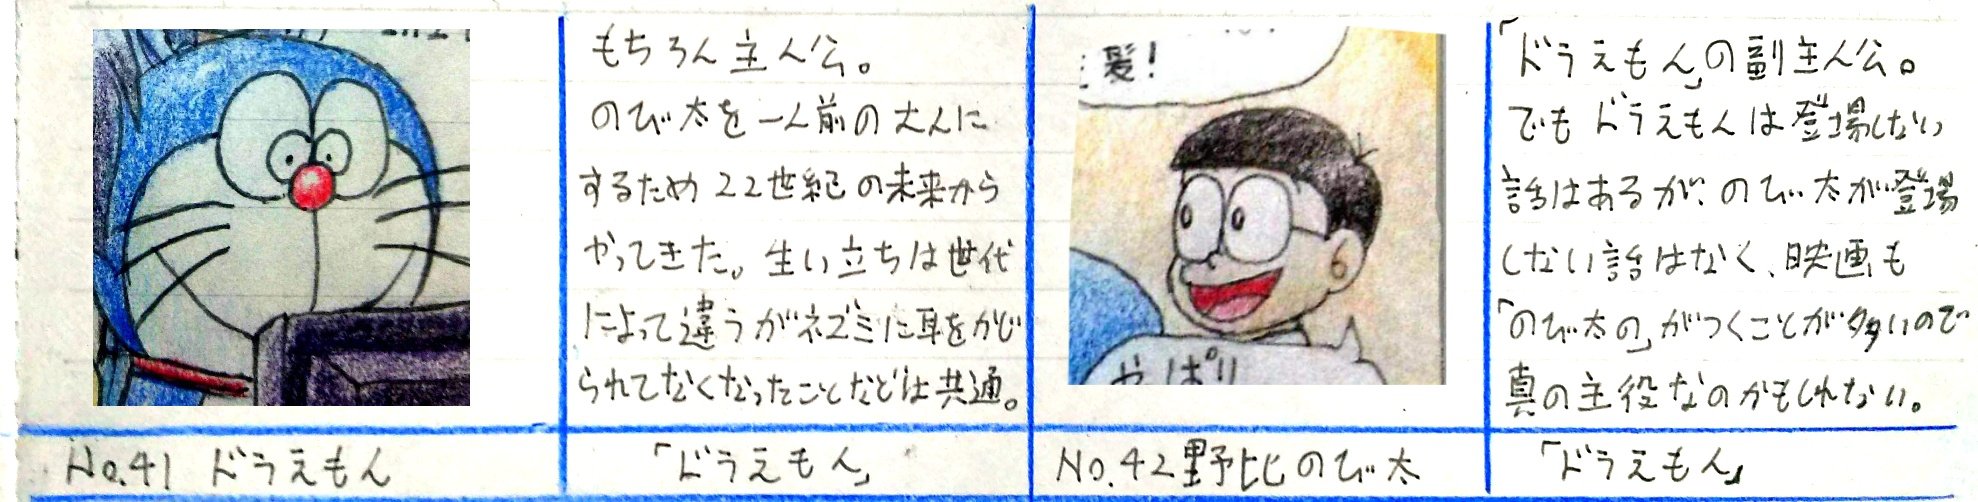 もちろん主人公。
のび太を一人前の大人に
するため22世紀の未来から
やってきた。生い立ちは世代
によって違うがネズミに耳をかじ
られてなくなったことなどは共通。
No.41 ドラえもん
「ドラえもん」
髪!
やっぱり
「ドラえもん」の副主人公。
でもドラえもんは登場しない
話はあるが、のび太が登場
しない話はなく、映画も
「のび太の」がつくことが多いので
真の主役なのかもしれない。
No.42 野比のび太
「ドラえもん」